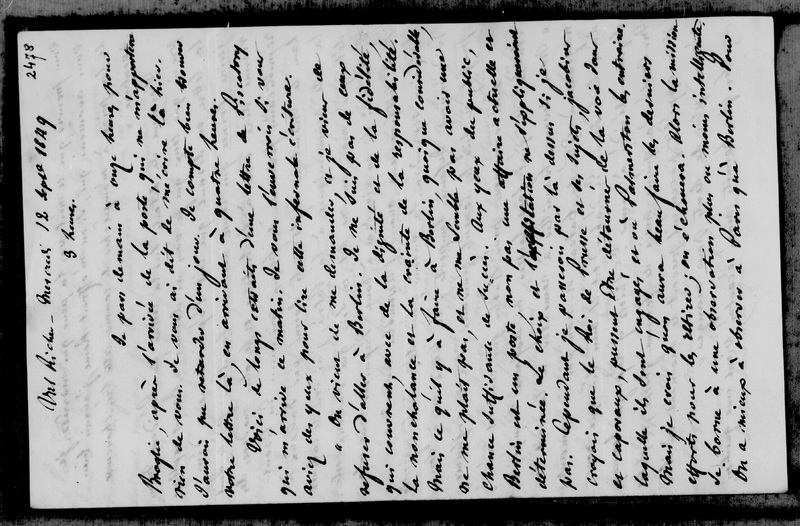 2478
Val Richer - Mercredi 12 Sept 1849
9 heures.
Je pars demain à onze heures pour
Broglie, après l'arrivée de la poste, qui ne m'apportera
rien de vous. Je vous ai dit de m'écrire là hier.
J'aurai un retard d'un jour. Je compte bien trouver
votre lettre là, en arrivant à quatre heures.
Voici de longs extraits d'une lettre de Piscatory
qui m'arrive ce matin. Je vous l'enverrois si vous
aviez des yeux pour lire cette infernale écriture.
" On vient de me demander et je viens de
refuser d'aller à Berlin. Je ne suis pas de ceux
qui couvrent, avec de la dignité et de la fidélité,
la nonchalance et la crainte de la responsabilité.
Mais ce qu'il y a à faire à Berlin, quoique considérable,
ne me plaît pas, et ne me semble pas avoir une
chance suffisante de succès. Aux yeux du public,
Berlin est un poste, non pas une affaire actuelle et
déterminée. Le cheval et l'exploitation ne s'appliquent
pas. Cependant je passerois par là dessus si je
croyois que le Roi de Prusse et ses sujets, jacobins
et caporaux, pussent être détournés de la voie dans
laquelle ils sont engagés et où Palmerston les entraîne.
Mais je crois qu'on aura beau faire les derniers
efforts pour les retirer; on échouera. Alors la mission
se borne à une observation plus ou moins intelligente.
On a mieux à observer à Paris qu'à Berlin. Pour